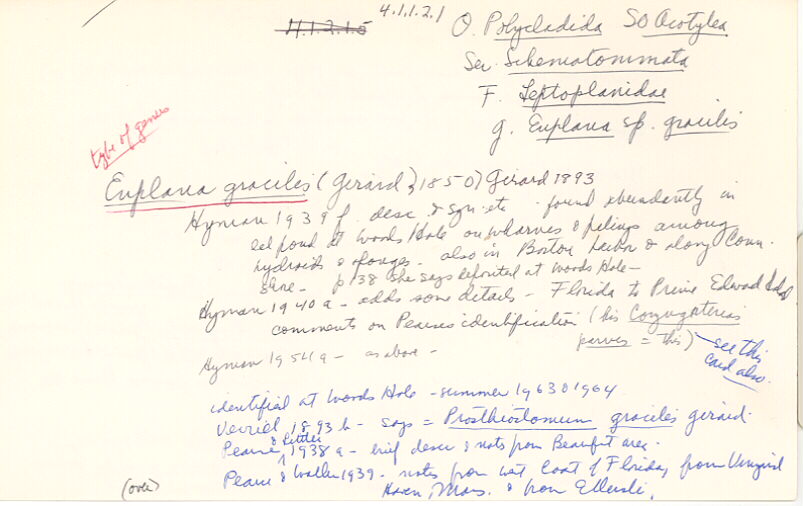 4.1.2.1.5 4.1.1.2.1
O. Polycladida SO Acotylea
Ser. Schematommata
F. Leptoplanidae
g. Euplana sp. gracilis
type of genus
Euplana gracilis (Girard, 1850) Girard 1893
Hyman 1939f. desc. & syn. etc. found abundantly in
eel pond at Woods Hole on wharves & pilings among
hydroids & sponges - also in Boston harbor & along Conn.
shore - p 138 she says deposited at Woods Hole -
Hyman 1940a - adds some details - Florida to Prince Edward Isl
comments on Pearses identification (his Conjugaterus
parvus = this) - see this
card also.
Hyman 1954a - as above -
identified at Woods Hole - summer 1963 & 1964
Verrill 1893b - says = Prosthiostomum gracilis girard.
Pearse & Littler 1938a - brief descr & nots from Beaufort area -
Pearse & Waller 1939 - notes from west Coast of Florida, from Vineyard
Haven, Mass. & from
(over)